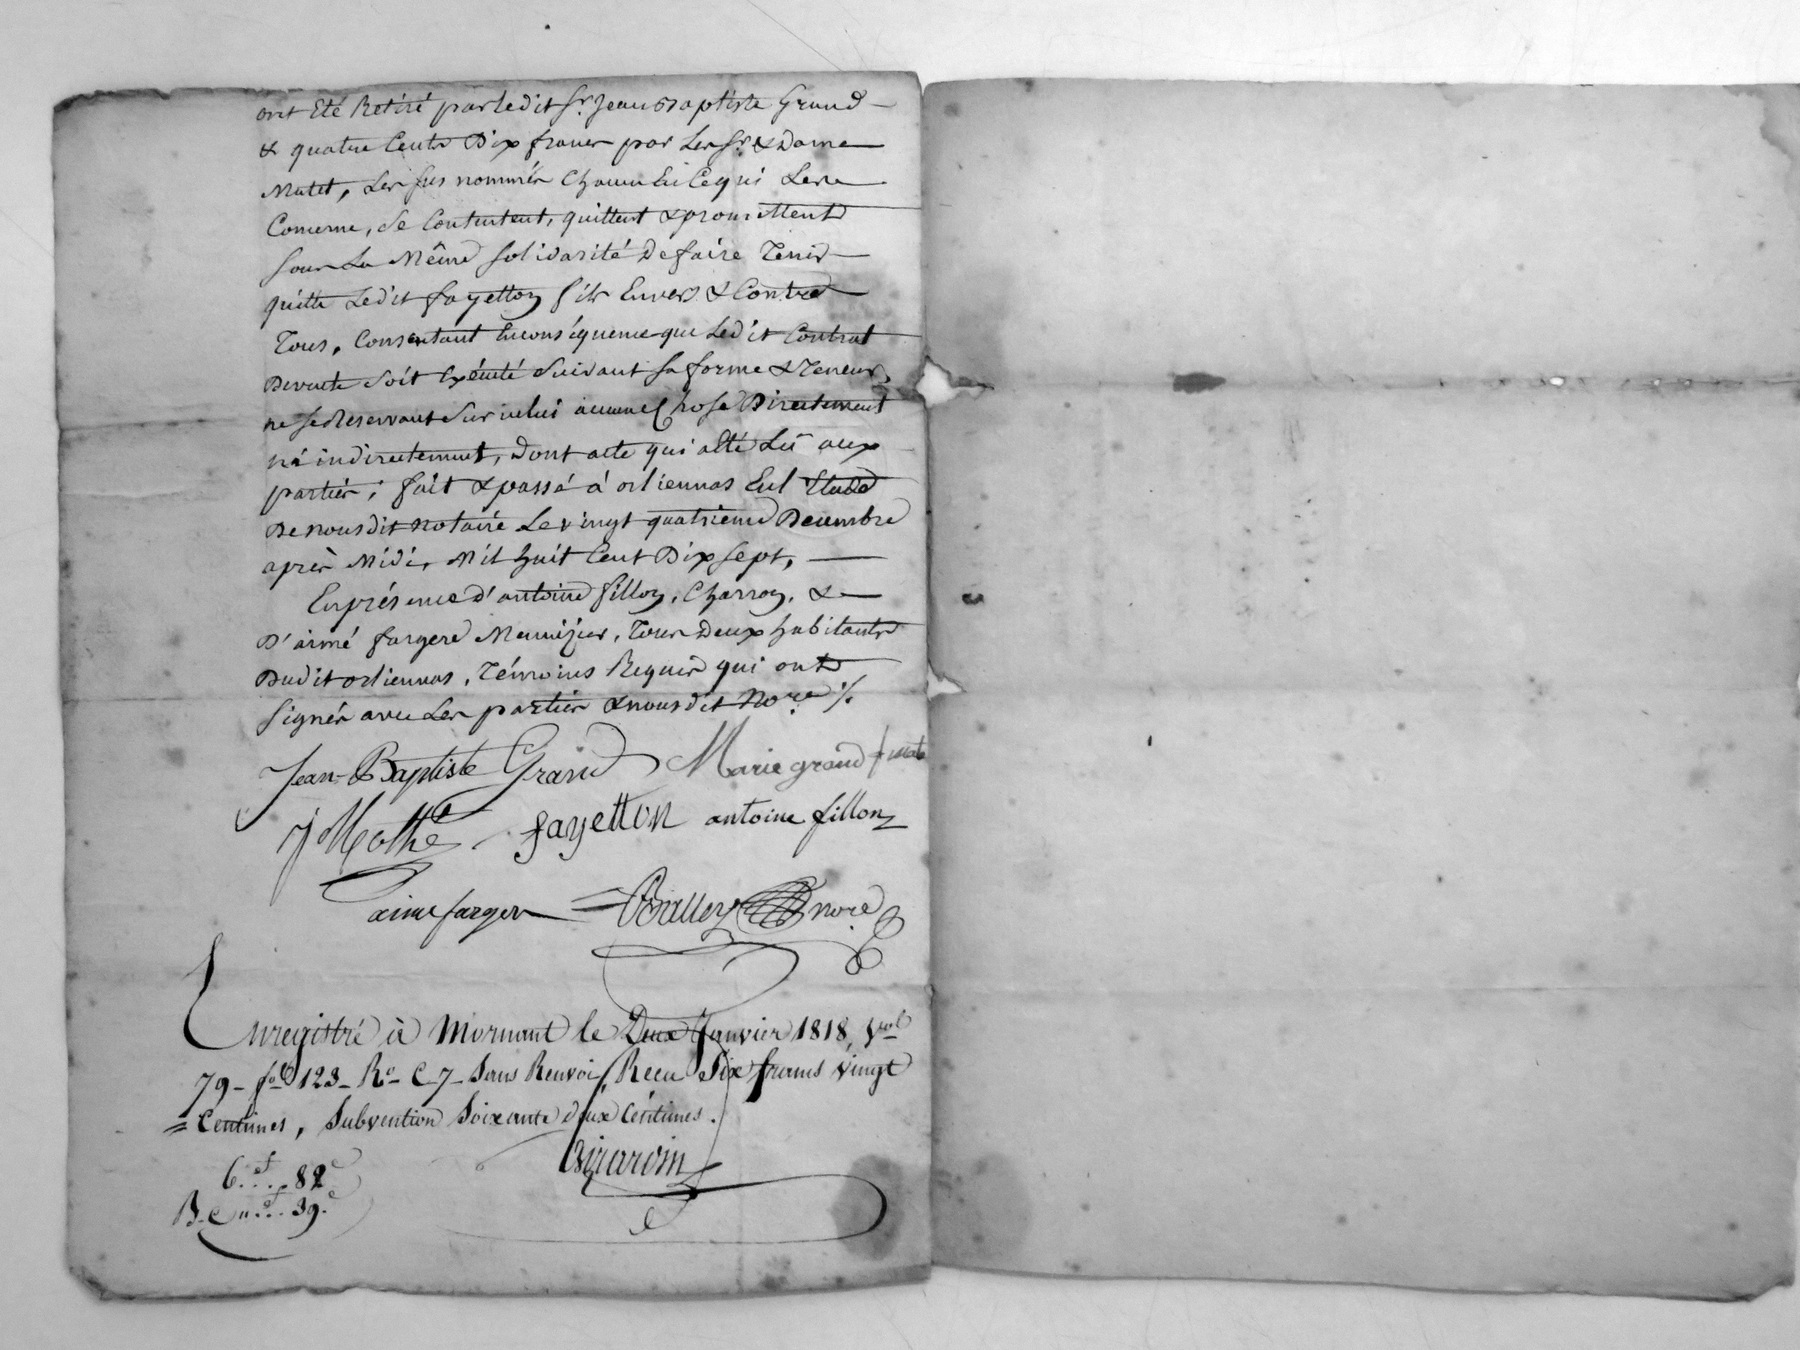 ont Eté Retiré par ledit Sr. Jean Baptiste Grand
& quatre Cents Dix francs par Les Sr. & Dame
Matet, Les sus nommés Chacun En Ce qui Les
Concerne, Se Contentent, quittent & promettent
sous La Même solidarité De faire Tenir
quitte Ledit fayetton fils Envers & Contre
Tous, Consentant En conséquence que Ledit Contrat
De vente soit Exécuté suivant sa forme & Teneur,
ne se Reservant sur icelui aucune Chose Directement
ni indirectement, Dont acte qui a Eté Lû aux
parties; fait & passé à orliennas En L'Etude
De nous dit notaire Le vingt quatrieme Decembre
après Midi, Mil huit Cent Dix sept,
En présence d'antoine fillon, Charron, &
D'aimé fargere Meunizier, Tous Deux habitants
Dudit orliennas, Témoins Requis qui ont
signés avec Les parties & nous dit Nore ./.
Jean-Baptiste Grand Marie grand f
J Mothé fayetton antoine fillon
aime farger nore
Enregistré à Mornant le Deux Janvier 1818, vol
79 - fol 123 - Ro - C 7 - Sans Renvoi, Recu Six francs vingt
= Centimes, Subvention Soixante deux Centimes.
Girardin
6.f.. 82c
39.c